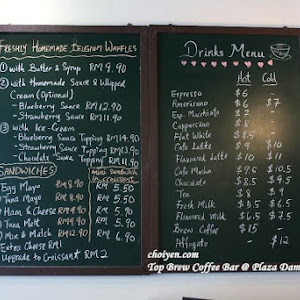 Freshly Homemade Belgium Waffles
① with Butter & Syrup RM9.90
② with Homemade Sauce & Whipped
Cream (Optional)
- Blueberry Sauce RM12.90
- Strawberry Sauce RM11.90
③ with Ice-Cream
- Blueberry Sauce Topping RM14.90
- Strawberry Sauce Topping RM13.90
- Chocolate Sauce Topping
SANDWICHES
mini sandwich
Egg Mayo RM8.90 RM 5.50
Tuna Mayo RM9.90 RM 5.50
Ham & Cheese RM9.90 RM 5.90
Tuna Melt RM9.90 RM 5.90
Mix & Match RM 6.90
Extra Cheese RM1
Upgrade to Croissant RM2
Drinks Menu
Hot Cold
Espresso $6 -
Americano $6 $7
Esp. Macchiato $7 -
Cappuccino $8 -
Flat White $8.5 -
Cafe Latte $9 $10
Flavoured Latte $10 $11
Cafe Mocha $9.5 $10.5
Chocolate $8.5 $9.5
Tea $5 $5
Fresh Milk $5.5 $6.5
Flavoured Milk $6.5 $7.5
Brew Coffee $15 -
Affogato - $12
choiyen.com
Top Brew Coffee Bar @ Plaza Dam